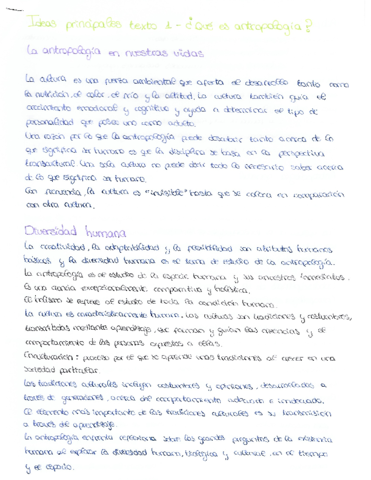 Ideas principales texto 1 - ¿Qué es antropología?
La antropología en nuestras vidas
La cultura es una fuerza ambiental que afecta el desarrollo tanto como
la nutrición, el calor, el frío y la altitud. La cultura también guía el
crecimiento emocional y cognitivo y ayuda a determinar el tipo de
personalidad que posee uno como adulto.
Una razón por la que la antropología puede descubrir tanto acerca de lo
que significa ser humano es que la disciplina se basa en la perspectiva
transcultural. Una sola cultura no puede decir todo lo necesario sobre acerca
de lo que significa ser humano.
Con frecuencia, la cultura es "invisible" hasta que se coloca en comparación
con otra cultura.
Diversidad humana
La creatividad, la adaptabilidad y la flexibilidad son atributos humanos
básicos y la diversidad humana es el tema de estudio de la antropología.
La antropología es el estudio de la especie humana y sus ancestros inmediatos.
Es una ciencia excepcionalmente comparativa y holística.
El holismo se refiere al estudio de toda la condición humana.
La cultura es característicamente humana. Las culturas son tradiciones y costumbres,
transmitidas mediante aprendizaje, que forman y guían las creencias y el
comportamiento de las personas expuestas a ellas.
Enculturación: proceso por el que se aprende unas tradiciones al crecer en una
sociedad particular.
Las tradiciones culturales incluyen costumbres y opiniones, desarrolladas a
través de generaciones, acerca del comportamiento adecuado e inadecuado.
El elemento más importante de las tradiciones culturales es su transmisión
a través del aprendizaje.
La antropología enfrenta explora las grandes preguntas de la existencia
humana al explorar la diversidad humana, biológica y cultural, en el tiempo
y el espacio.